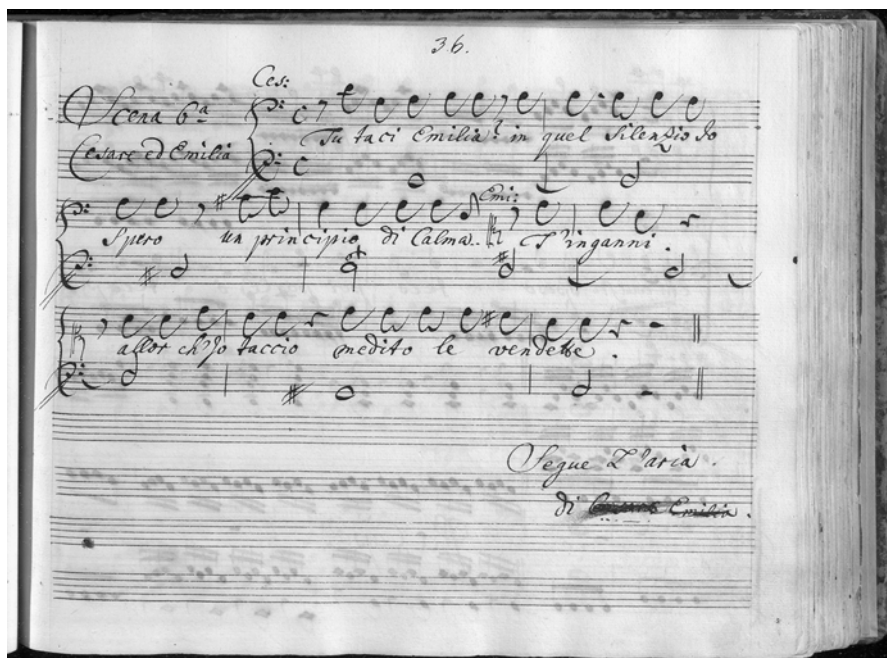 36.
Ces:
Scena 6a
Cesare ed Emilia
Tu taci Emilia? in quel Silenzio Io
Emi:
Spero un principio di Calma.. T'inganni.
allor ch'Io taccio medito le vendette.
Segue L'aria.
di Emilia.